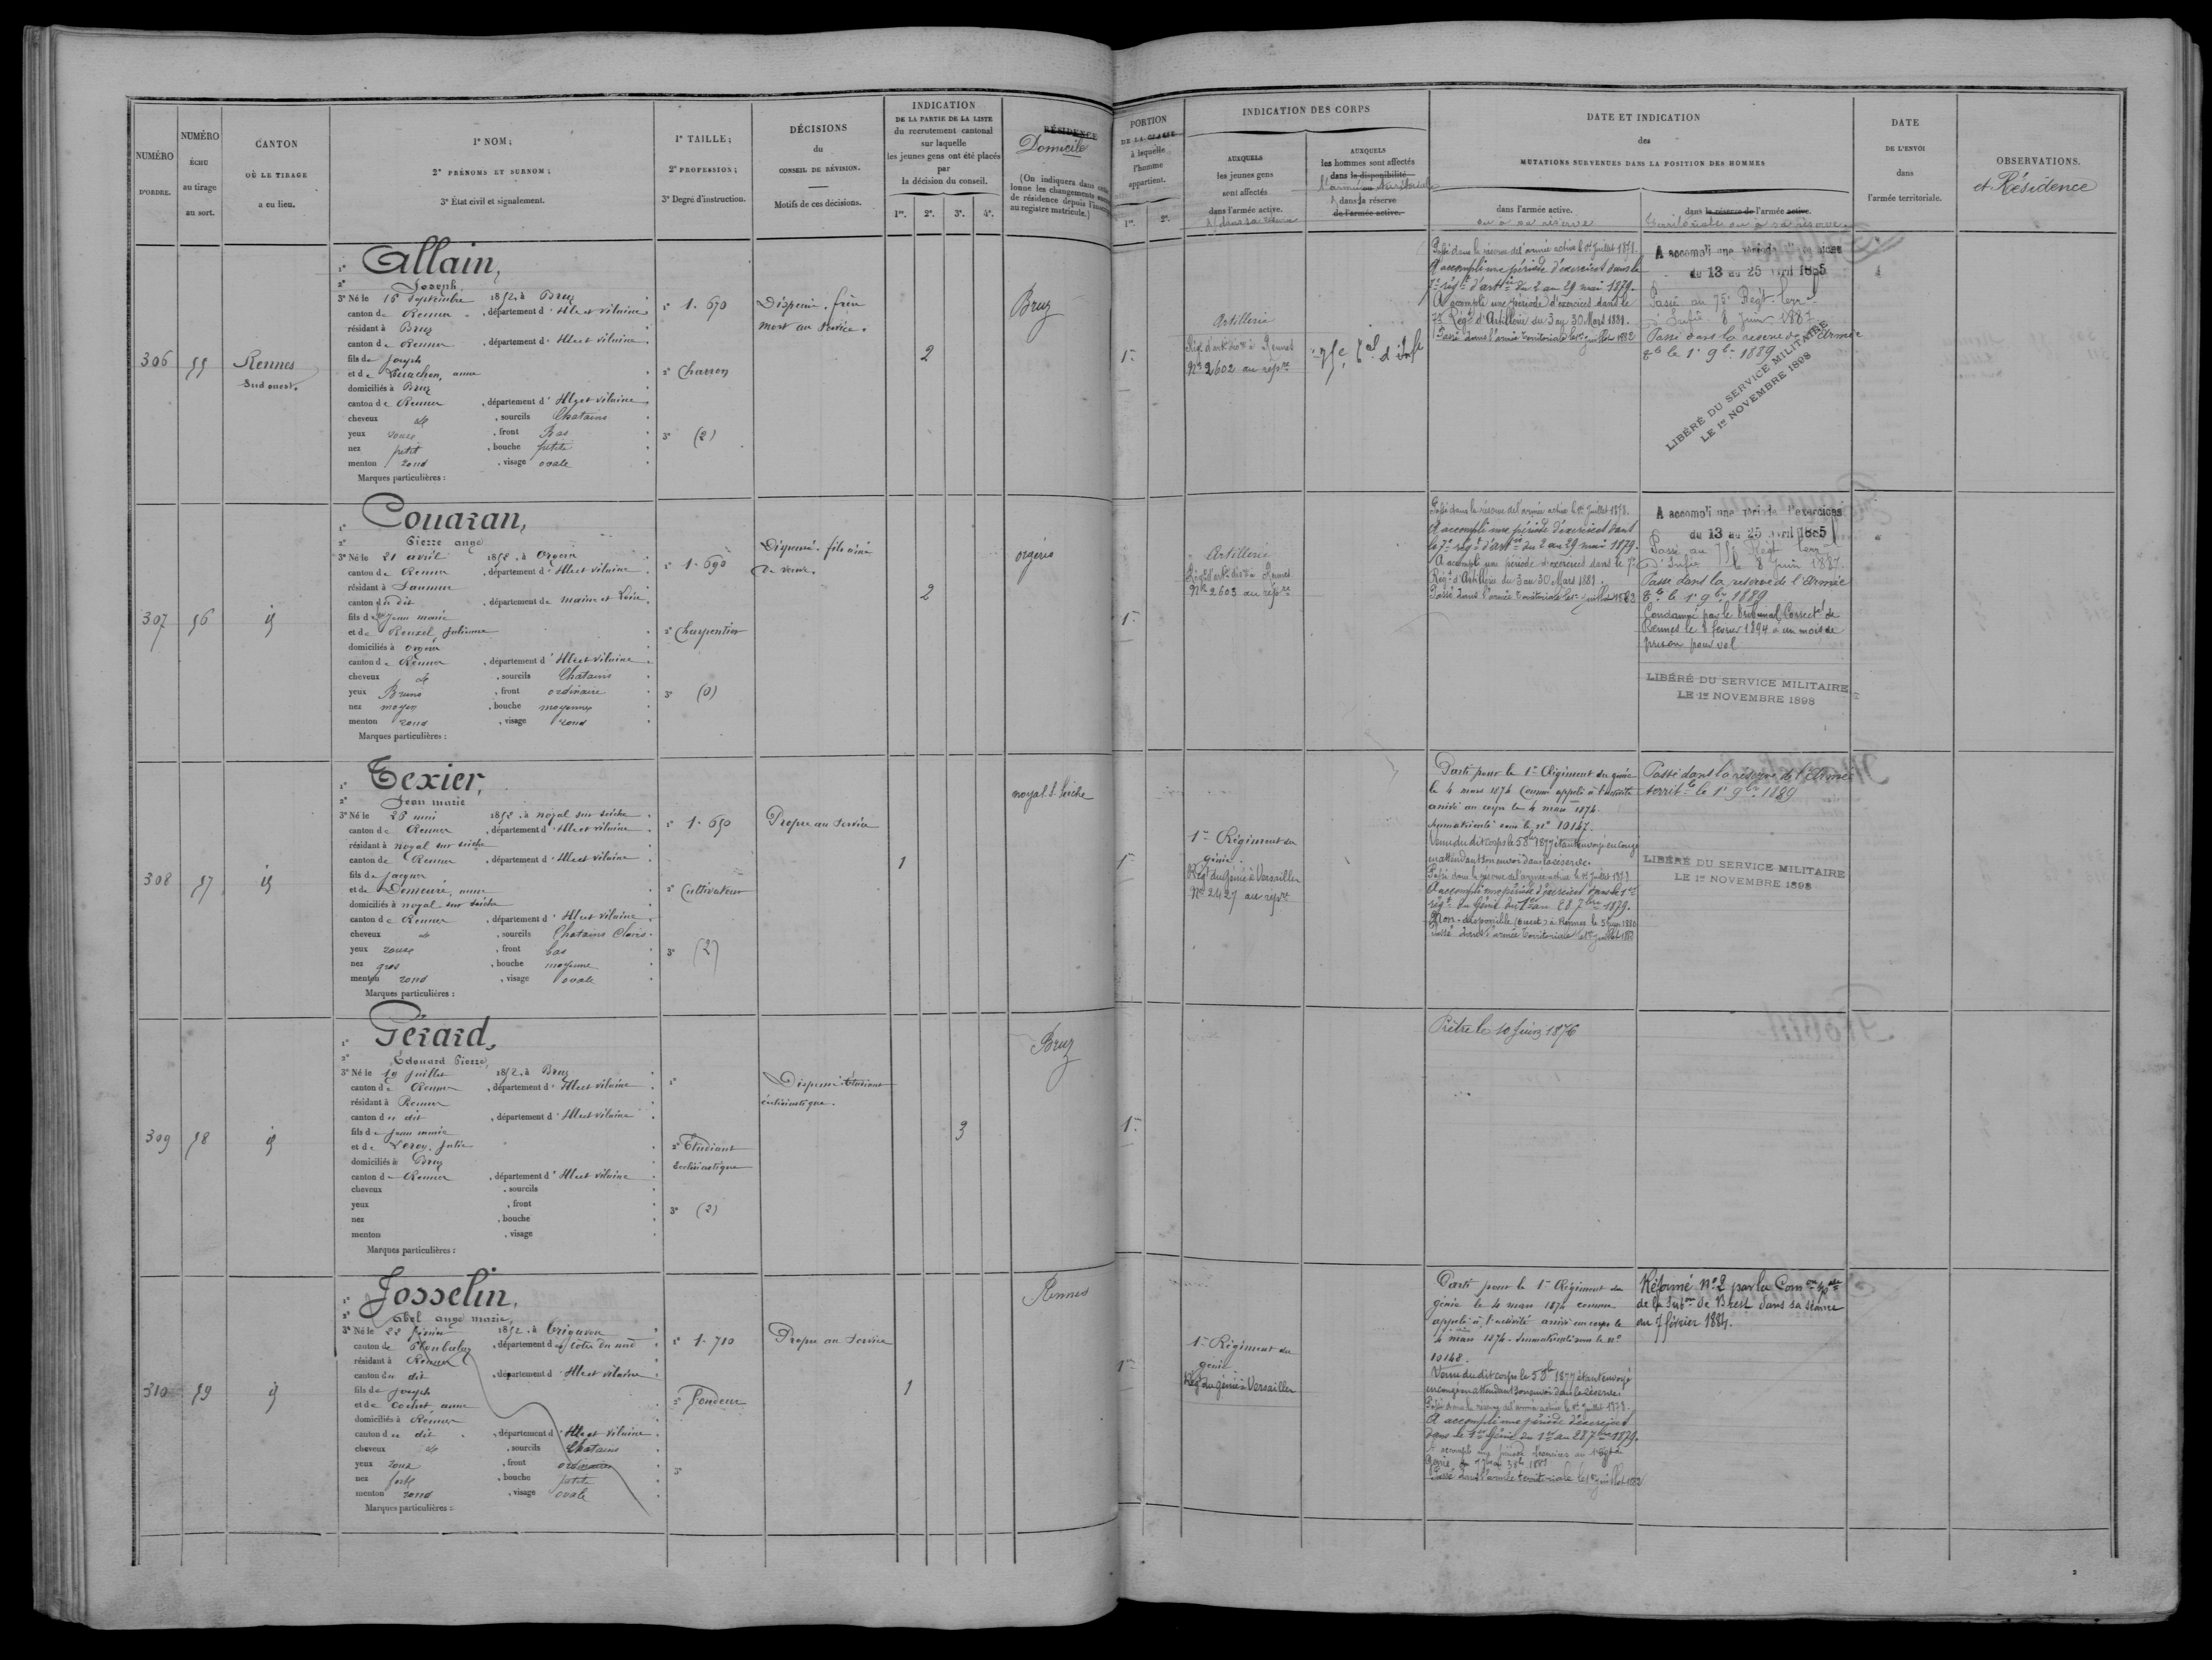 NUMÉRO
D'ORDRE.
NUMÉRO
ÉCHU
au tirage
au sort.
CANTON
OÙ LE TIRAGE
a eu lieu.
1° NOM;
2° PRÉNOMS ET SURNOM;
3° État civil et signalement.
1° TAILLE;
2° PROFESSION;
3° Degré d'instruction.
DÉCISIONS
du
CONSEIL DE RÉVISION.
Motifs de ces décisions.
INDICATION
DE LA PARTIE DE LA LISTE
du recrutement cantonal
sur laquelle
les jeunes gens ont été placés
par
la décision du conseil.
1re. 2e. 3e. 4e.
RÉSIDENCE
Domicile
(On indiquera dans
lonne les changements
de résidence depuis
au registre matricule.)
PORTION
DE LA CLASSE
à laquelle
l'homme
appartient.
1re. 2e.
INDICATION DES CORPS
AUXQUELS
les jeunes gens
sont affectés
dans l'armée active.
et dans sa réserve
AUXQUELS
les hommes sont affectés
dans la disponibilité
l'armée territoriale
dans la réserve
de l'armée active.
DATE ET INDICATION
des
MUTATIONS SURVENUES DANS LA POSITION DES HOMMES
dans l'armée active.
ou sa réserve
dans la réserve de l'armée active.
Territoriale ou à sa réserve
DATE
DE L'ENVOI
dans
l'armée territoriale.
OBSERVATIONS.
et Résidence
306
55
Rennes
Sud ouest.
1° Allain,
2° Joseph
3° Né le 16 Septembre 1852, à Bruz
canton de Rennes, département d'Ille et vilaine
résidant à Bruz
canton de Rennes, département d'Ille et vilaine
fils de Joseph
et de anne
domiciliés à Bruz
canton de Rennes, département d'Ille et vilaine
cheveux , sourcils Chatains
yeux roux, front Bas
nez petit, bouche petite
menton rond, visage ovale
Marques particulières :
1° 1.670
2° Charron
3° (2)
Dispensé. frère
mort au service.
2
Bruz
1re
Artillerie
Rég. d'art. à Rennes
No 2602 au rép.re
75e Tal d'Infie
Passé dans la réserve de l'armée active le 1er Juillet 1878.
A accompli une période d'exercices dans le
7e régt d'artie du 2 au 29 mai 1879.
A accompli une période d'exercices dans le
7e Régt d'Artillerie du 3 au 30 Mars 1881.
Passé dans l'armée territoriale le 1er juillet 1882
A accompli une période d'exercices
du 13 au 25 avril 1885
Passé au 75e Régt terr.al
d'Infie 8 Juin 1887
Passé dans la réserve de l'Armée
tle le 1er 9bre 1889
LIBÉRÉ DU SERVICE MILITAIRE
LE 1er NOVEMBRE 1898
307
56
id
1° Couazan,
2° Pierre ange
3° Né le 21 avril 1852, à Orgères
canton de Rennes, département d'Ille et vilaine
résidant à Saumur
canton du dit, département de maine et Loire
fils de Jean marie
et de Julienne
domiciliés à Orgères
canton de Rennes, département d'Ille et vilaine
cheveux , sourcils Chatains
yeux Bruns, front ordinaire
nez moyen, bouche moyenne
menton rond, visage rond
Marques particulières :
1° 1.690
2° Charpentier
3° (0)
Dispensé. fils aîné
de veuve.
2
orgères
1re
Artillerie
Rég. d'art. à Rennes
No 2603 au rép.re
Passé dans la réserve de l'armée active le 1er Juillet 1878.
A accompli une période d'exercices dans
le 7e régt d'artie du 2 au 29 mai 1879.
A accompli une période d'exercices dans le 7e
Régt d'Artillerie du 3 au 30 Mars 1881.
Passé dans l'armée territoriale le 1er juillet 1883
A accompli une période d'exercices
du 13 au 25 avril 1885
Passé au 75e Régt terr.al
d'Infie le 8 juin 1887.
Passé dans la réserve de l'Armée
tle le 1er 9bre 1889
Condamné par le Tribunal Correctel de
Rennes le 8 fevrier 1894 à un mois de
prison pour vol
LIBÉRÉ DU SERVICE MILITAIRE
LE 1er NOVEMBRE 1898
308
57
id
1° Texier,
2° Jean marie
3° Né le 26 mai 1852, à noyal sur seiche
canton de Rennes, département d'Ille et vilaine
résidant à noyal sur seiche
canton de Rennes, département d'Ille et vilaine
fils de Jacques
et de Demeuré, anne
domiciliés à noyal sur seiche
canton de Rennes, département d'Ille et vilaine
cheveux , sourcils Chatains Clairs
yeux roux, front bas
nez gros, bouche moyenne
menton rond, visage ovale
Marques particulières :
1° 1.650
2° Cultivateur
3° (2)
Propre au Service
1
noyal s. Seiche
1re
1er Régiment du
génie
Régt du génie à Versailles
No 2427 au rép.re
Parti pour le 1er Régiment du génie
le 4 mars 1874 comme appelé à l'activité
arrivé au corps le 4 mars 1874.
Immatriculé sous le no 10147.
Venu du dit corps le 5 8bre 1877 étant envoyé en congé
en attendant son envoi dans la réserve.
Passé dans la réserve de l'armée active le 1er Juillet 1878
A accompli une période d'exercices dans le 1er
régt du Génie du 1er au 28 7bre 1879.
Non-disponible (ouest) à Rennes le 5 1880
Passé dans l'armée territoriale le 1er juillet 188
Passé dans la réserve de l'Armée
territle le 1er 9bre 1889
LIBÉRÉ DU SERVICE MILITAIRE
LE 1er NOVEMBRE 1898
309
58
id
1° Gérard,
2° Edouard Pierre,
3° Né le 19 juillet 1852, à Bruz
canton de Rennes, département d'Ille et vilaine
résidant à Rennes
canton du dit, département d'Ille et vilaine
fils de Jean marie
et de Leroy, Julie
domiciliés à Bruz
canton de Rennes, département d'Ille et vilaine
cheveux , sourcils
yeux , front
nez , bouche
menton , visage
Marques particulières :
1°
2° Étudiant
Ecclésiastique
3° (2)
Dispensé. Étudiant
écclésiastique.
3
Bruz
1re
Prêtre le 10 juin 1876
310
59
id
1° Josselin,
2° Abel ange marie,
3° Né le 22 février 1852, à Trigavou
canton de Ploubalay, département des Côtes du nord
résidant à Rennes
canton du dit, département d'Ille et vilaine
fils de Joseph
et de Cochet anne
domiciliés à Rennes
canton du dit, département d'Ille et vilaine
cheveux , sourcils Chatains
yeux roux, front ordinaire
nez fort, bouche petite
menton rond, visage ovale
Marques particulières :
1° 1.710
2° Fondeur
3°
Propre au Service
1
Rennes
1re
1er Régiment du
génie
Régt du génie à Versailles
Parti pour le 1er Régiment du
génie le 4 mars 1874 comme
appelé à l'activité arrivé au corps le
4 mars 1874. Immatriculé sous le no
10148.
Venu du dit corps le 5 8bre 1877 étant envoyé
en congé en attendant son envoi dans la réserve
Passé dans la réserve de l'armée active le 1er Juillet 1878.
A accompli une période d'exercices
dans le 1er Génie du 1er au 28 7bre 1879.
A accompli une période d'exercices au 1er régt du
Génie du 1881
Passé dans l'armée territoriale le 1er juillet 1882
Réformé No 2 par la Comon spale
de la subon de Brest dans sa séance
du 7 février 1884.
2